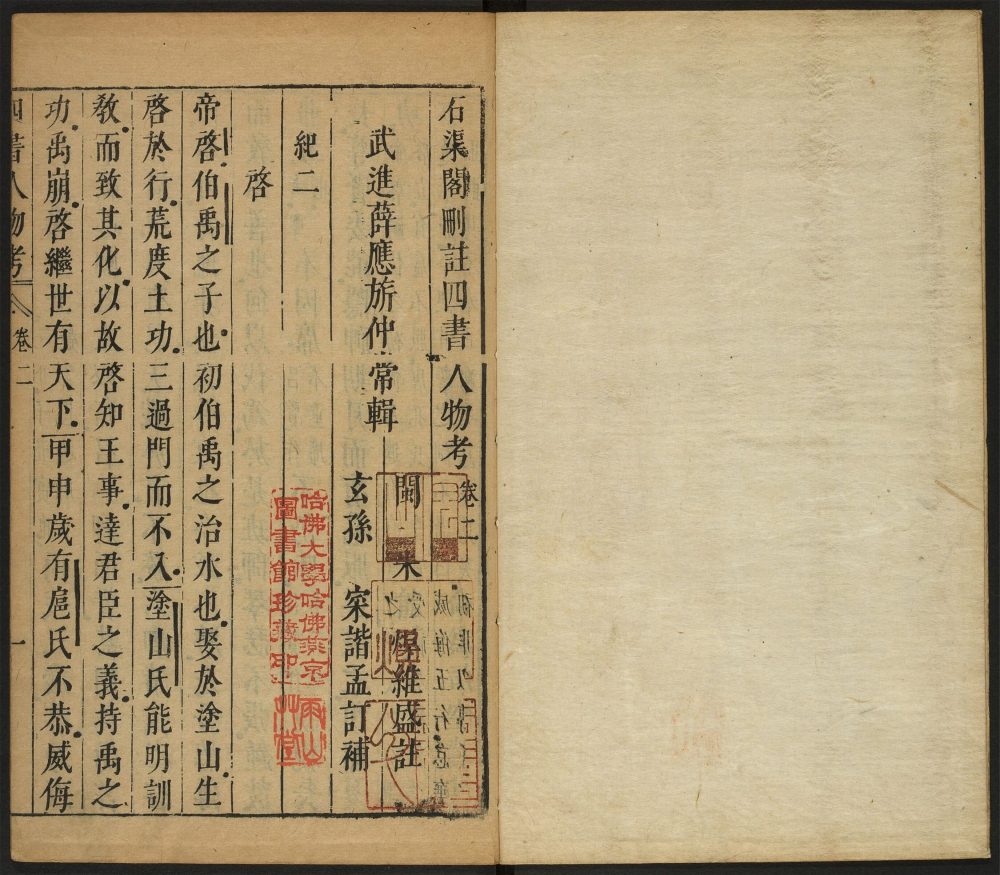 石渠閣刪註四書人物考 卷二
武進薛應旂仲常輯
閩 朱 㷆維盛註
玄孫 寀諧孟訂補
紀二
啓
帝啓伯禹之子也初伯禹之治水也娶於塗山生
啓於行荒度土功三過門而不入塗山氏能明訓
敎而致其化以故啓知王事達君臣之義持禹之
功禹崩啓繼世有天下甲申歲有扈氏不恭威侮
四書人物考 卷二 一
哈佛大學哈佛燕京
圖書館珍藏印
雨山
艸堂